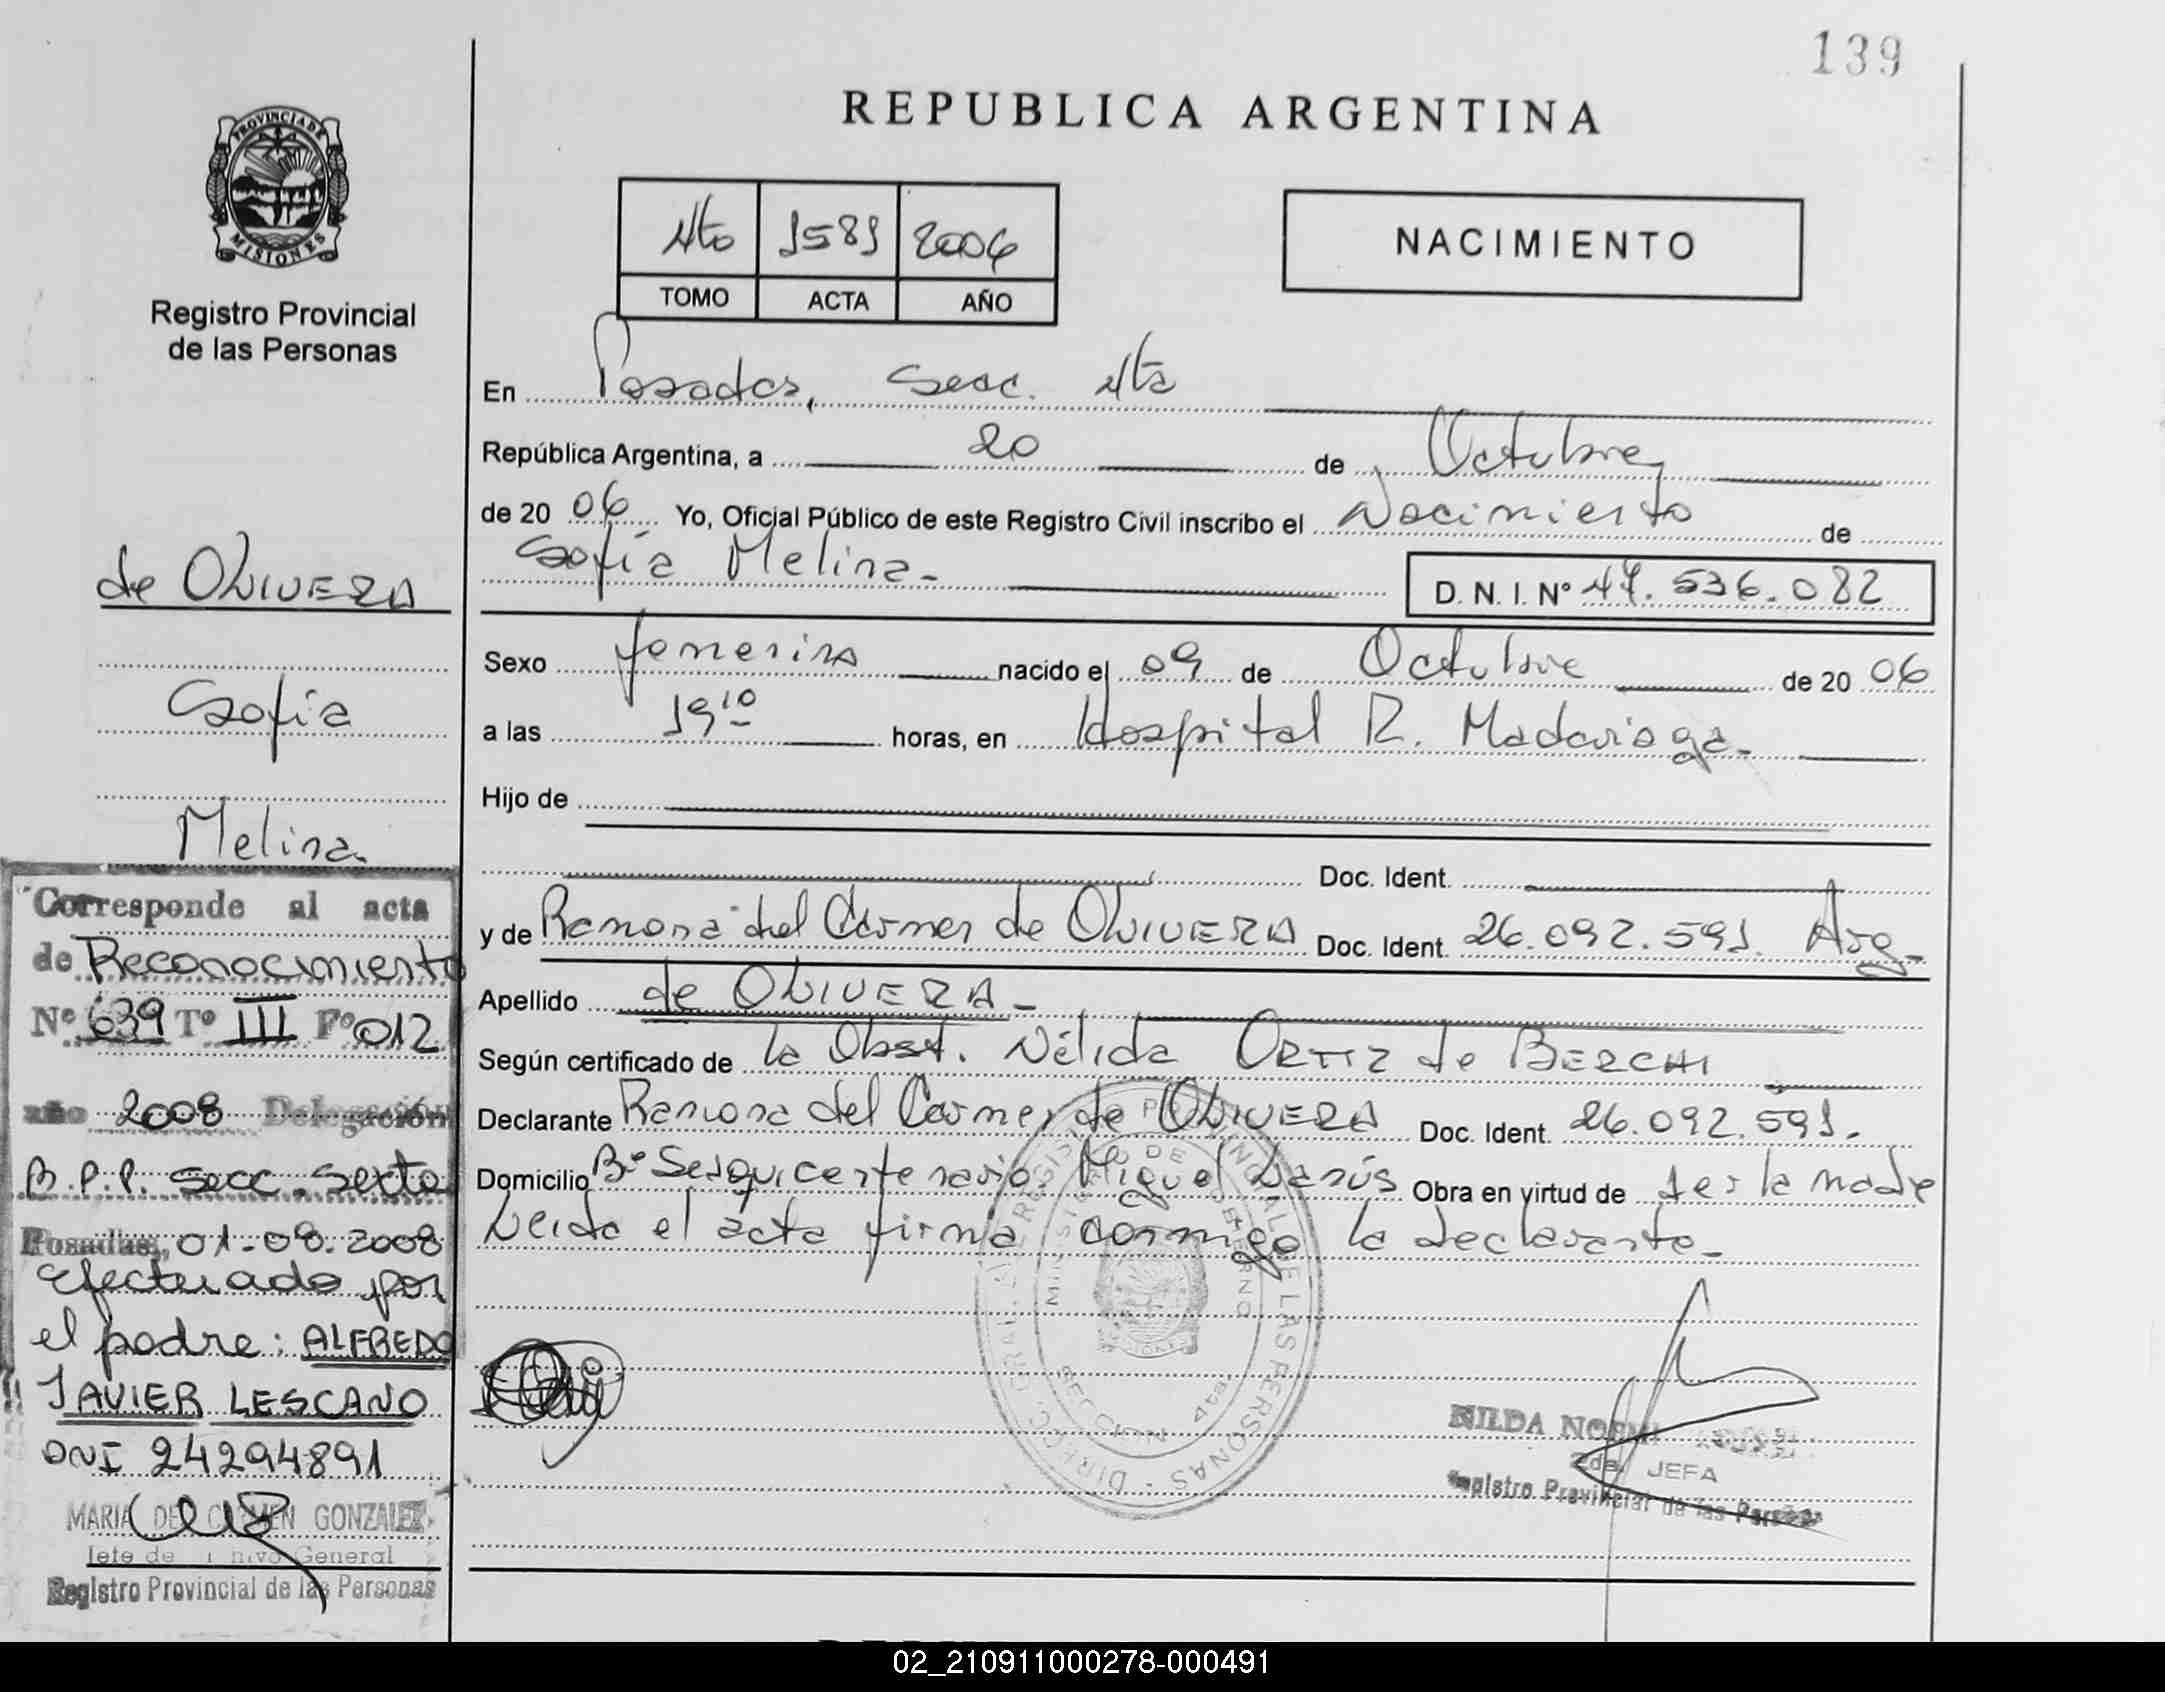 139
REPUBLICA ARGENTINA
PROVINCIA DE
MISIONES
Registro Provincial
de las Personas
4to 1581 2006
TOMO ACTA AÑO
NACIMIENTO
En Posadas, Secc. 4ta
República Argentina, a 20 de Octubre
de 20 06 Yo, Oficial Público de este Registro Civil inscribo el Nacimiento de
Sofía Melina.- D. N. I. Nº 47.536.082
Sexo femenino nacido el 09 de Octubre de 20 06
a las 19 10 horas, en Hospital R. Madariaga.-
Hijo de
Doc. Ident.
y de Ramona del Carmen de OLIVERA Doc. Ident. 26.092.591. Arg.-
Apellido de OLIVERA.-
Según certificado de la Obst. Nélida ORTIZ de BERCHI
Declarante Ramona del Carmen de OLIVERA Doc. Ident. 26.092.591.
Domicilio Bº Sesquicentenario. Miguel Lanús Obra en virtud de ser la madre
Leida el acta firma conmigo la declarante.-
de OLIVERA
Sofía
Melina.
Corresponde al acta
de Reconocimiento
Nº 639 Tº III Fº 012
año 2008 Delegación
B.P.P. Secc. Sexta
Posadas, 01-08-2008
Efectuado por
el padre: ALFREDO
JAVIER LESCANO
DNI 24294891
MARIA DEL CARMEN GONZALEZ
Jefe de General
Registro Provincial de las Personas
MINISTERIO DE GOBIERNO
SECCION 4ta.
NILDA NOEMI
2da. JEFA
Registro Provincial de las Personas
02_210911000278-000491